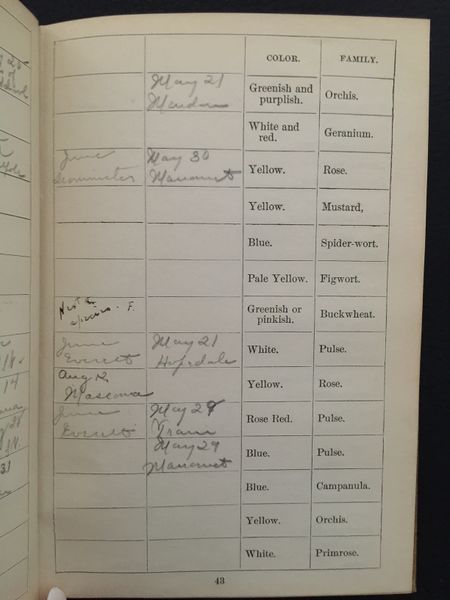 COLOR. FAMILY.
May 21 Greenish and
Mendon purplish. Orchis.
White and
red. Geranium.
June May 30
Leominster Manomet Yellow. Rose.
Yellow. Mustard,
Blue. Spider-wort.
Pale Yellow. Figwort.
Not a Greenish or
species. F. pinkish. Buckwheat.
June May 21
Everett Hopedale White. Pulse.
Aug 12,
Mascoma Yellow. Rose.
June May 29
Everett Rose Red. Pulse.
May 29
Manomet Blue. Pulse.
Blue. Campanula.
Yellow. Orchis.
White. Primrose.
43